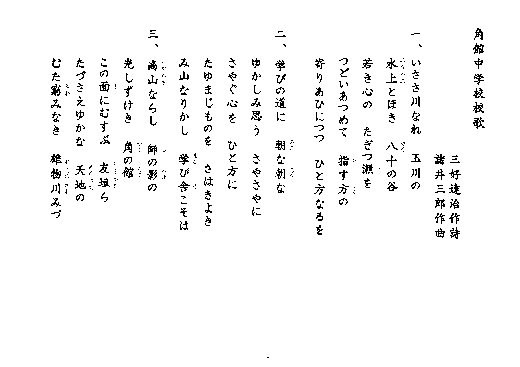 角館中学校校歌
三好達治作詩
諸井三郎作曲
一、いささ川なれ 玉川の
水上とほき 八十の谷
若き心の たぎつ瀬を
つどいあつめて 指す方の
寄りあひにつつ ひと方なるを
二、学びの道に 朝な朝な
ゆかしみ思う さやさやに
さやぐ心を ひと方に
たゆまじものを さはきよき
み山なりかし 学び舎こそは
三、高山ならし 師の影の
光しずけき 角の館
この面にむすぶ 友垣ら
たづさえゆかな 天地の
むた窮みなき 雄物川みづ